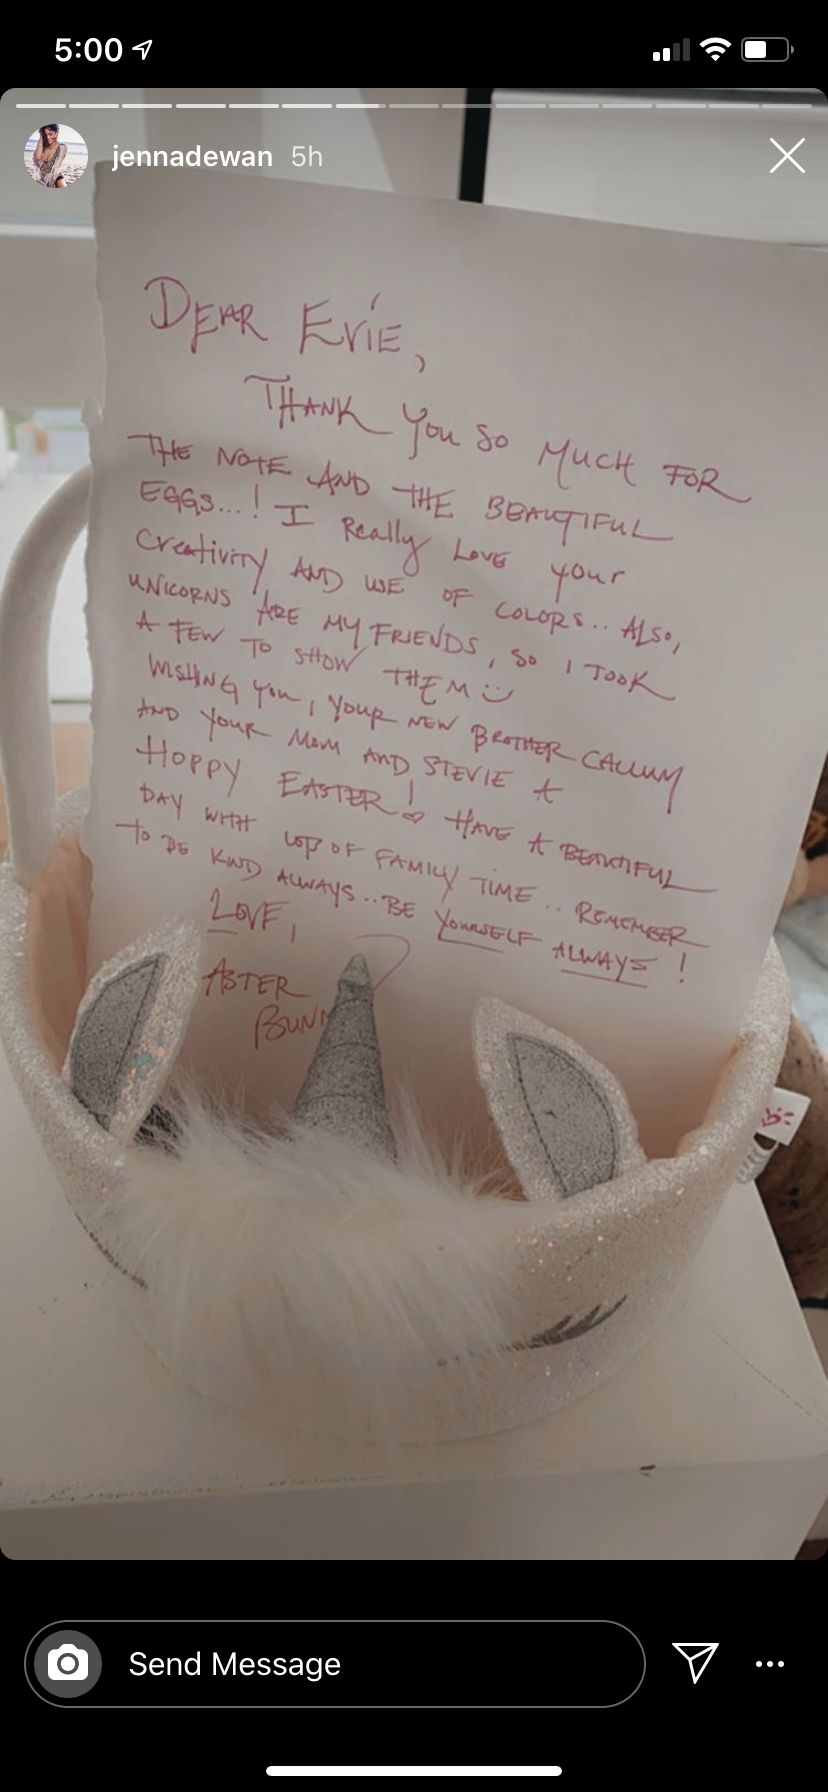 5:00
jennadewan 5h
DEAR EVIE,
THANK YOU SO MUCH FOR
THE NOTE AND THE BEAUTIFUL
EGGS...! I Really LOVE your
Creativity AND USE OF COLORS.. ALSO,
UNICORNS ARE MY FRIENDS, SO I TOOK
A FEW TO SHOW THEM
WISHING You, YOUR NEW BROTHER CALLUM
AND YOUR MOM AND STEVIE A
HOPPY EASTER! HAVE A BEAUTIFUL
DAY WITH LOTS OF FAMILY TIME.. REMEMBER
TO BE KIND ALWAYS.. BE YOURSELF ALWAYS!
LOVE,
ASTER
BUNN
Send Message